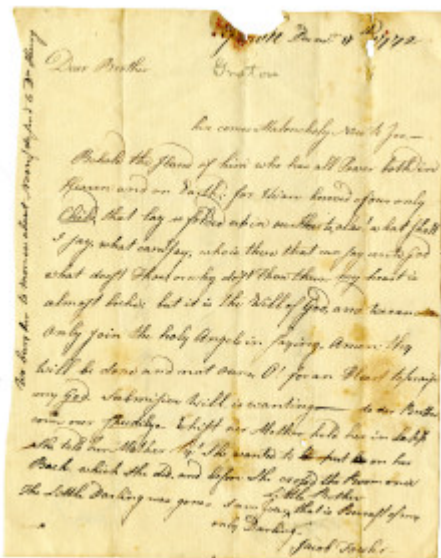 Groton Decemr 1772
Dear Brother
Groton
here comes Malencholy News to You —
Behold the Hand of him who has all Power both in
Heaven and on Earth; for I am of our only
Child, that lay so folded up in our hearts, alas! what shall
I say, what can I say, who is there that can say unto God
what dost Thou or why dost Thou thus my heart is
almost broke; but it is the Will of God, and we can
only join the holy Angels in saying, Amen thy
will be done and not ours. O! for an Heart to praise
my God Submissive Will is wanting — dear Brother
come over Mother held her in
She told our Mother She wanted to be put on her
Back which She did, and before She crossed the Room once
The Little Darling was gone. I am Little Brother
that is Bereaft of my
only Darling.
Jacob Fowler
We bury her to morrow about